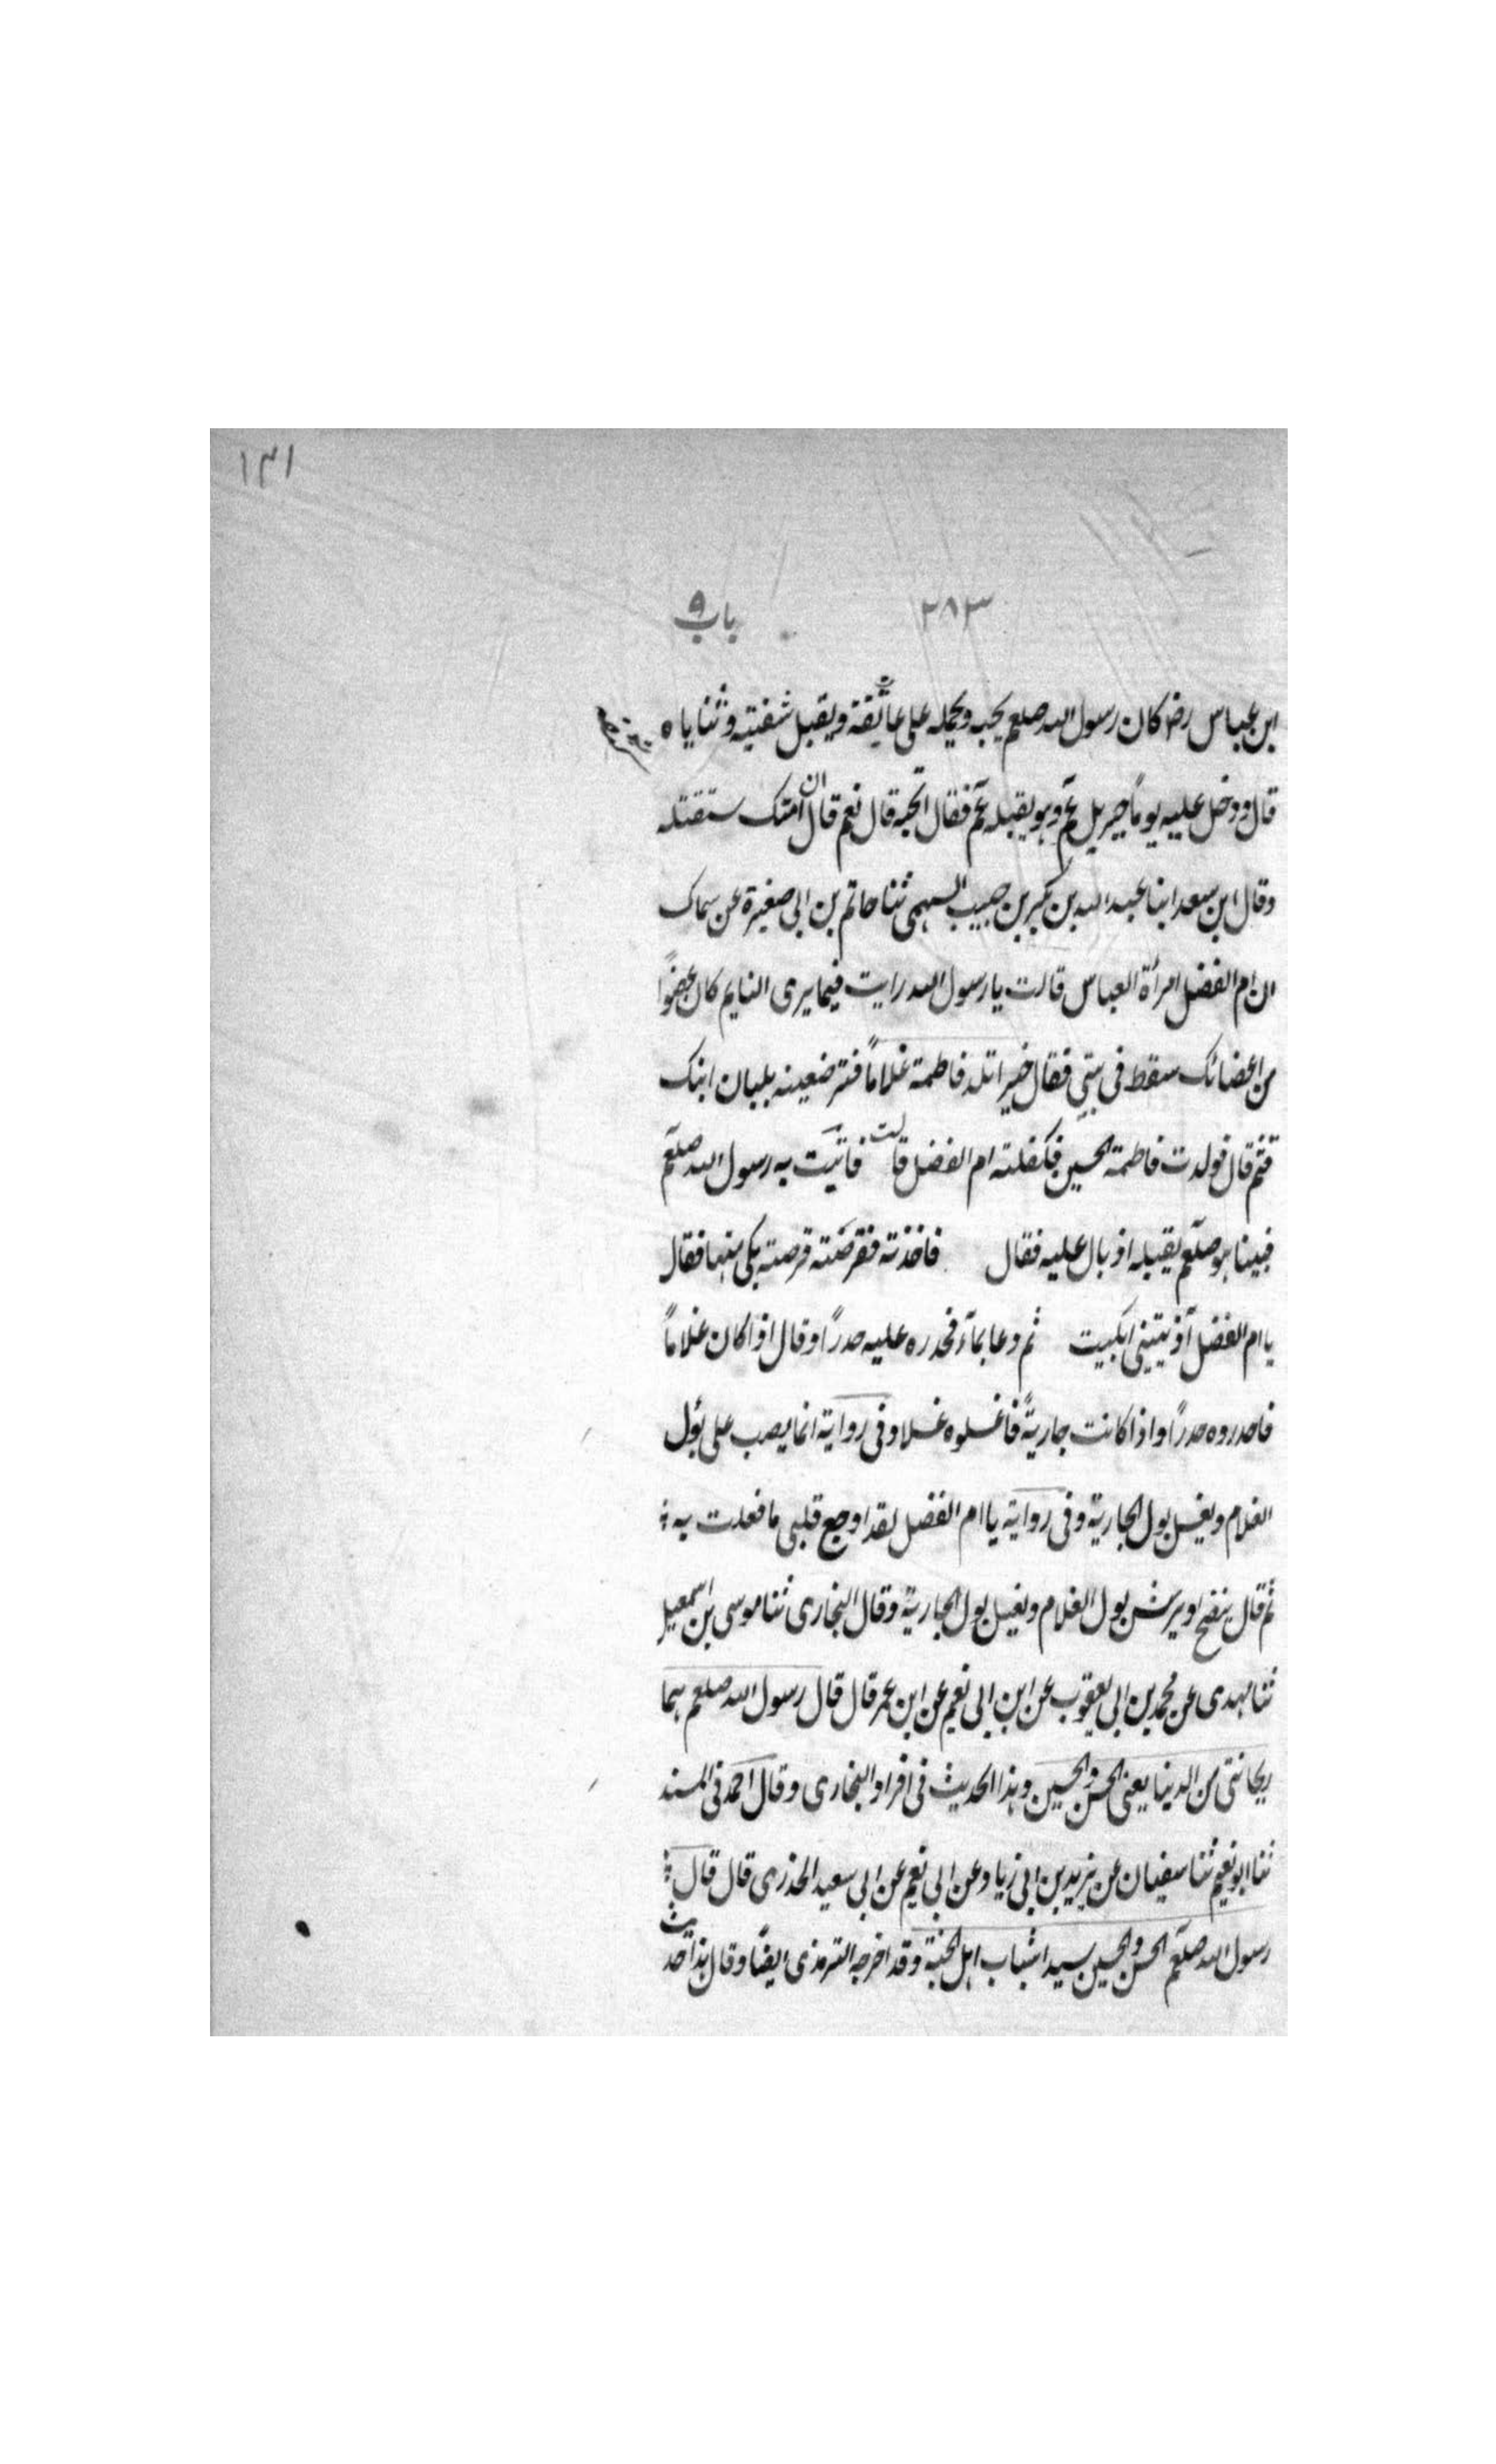 ١٣١
٢٨٣ باب ٩
ابن عباس رضا كان رسول الله صلعم يحبه ويحمله على عاتقه ويقبل شفتيه وثنایاه
قال ودخل عليه يوماً جبريل عم وهو يقبله عم فقال اتحبه قال نعم قال ان امتك ستقتله
وقال ابن سعد ابنا عبد الله بن بكير بن حبيب السهمى ثنا حاتم بن ابى صغيرة عن سماك
ان ام الفضل امرأة العباس قالت يا رسول الله رايت فيما يرى النايم كان عضواً
من اعضائك سقط فى بيتى فقال خيرا تلد فاطمة غلاماً فترضعينه بلبان ابنك
قثم قال فولدت فاطمة الحسين فكفلته ام الفضل قالت فاتيت به رسول الله صلعم
فبينا هو صلعم يقبله اذ بال عليه فقال فاخذته فقرصته قرصته بكى منها فقال
يا ام الفضل آذيتينى ابكيت ثم دعا بماء فحدره عليه حدراً وقال اذا كان غلاماً
فاحدروه حدراً واذا كانت جاريةً فاغسلوه غسلا وفى رواية انما يصب على بول
الغلام ويغسل بول الجارية وفى رواية يا ام الفضل لقد اوجع قلبى ما فعلت به
ثم قال ينضح او يرش بول الغلام ويغسل بول الجارية وقال البخارى ثنا موسى بن اسمعيل
ثنا مهدى عن محمد بن ابى يعقوب عن ابن ابى نعيم عن ابن عمر قال قال رسول الله صلعم هما
ريحانتى من الدينا يعنى الحسن والحسين وهذا الحديث فى افراد البخارى وقال احمد فى المسند
ثنا ابو نعيم ثنا سفيان عن يزيد بن ابى زياد عن ابى نعيم عن ابى سعيد الخذرى قال قال
رسول الله صلعم الحسن والحسين سيدا شباب اهل الجنة وقد اخرجه الترمذى ايضاً وقال هذا حديث